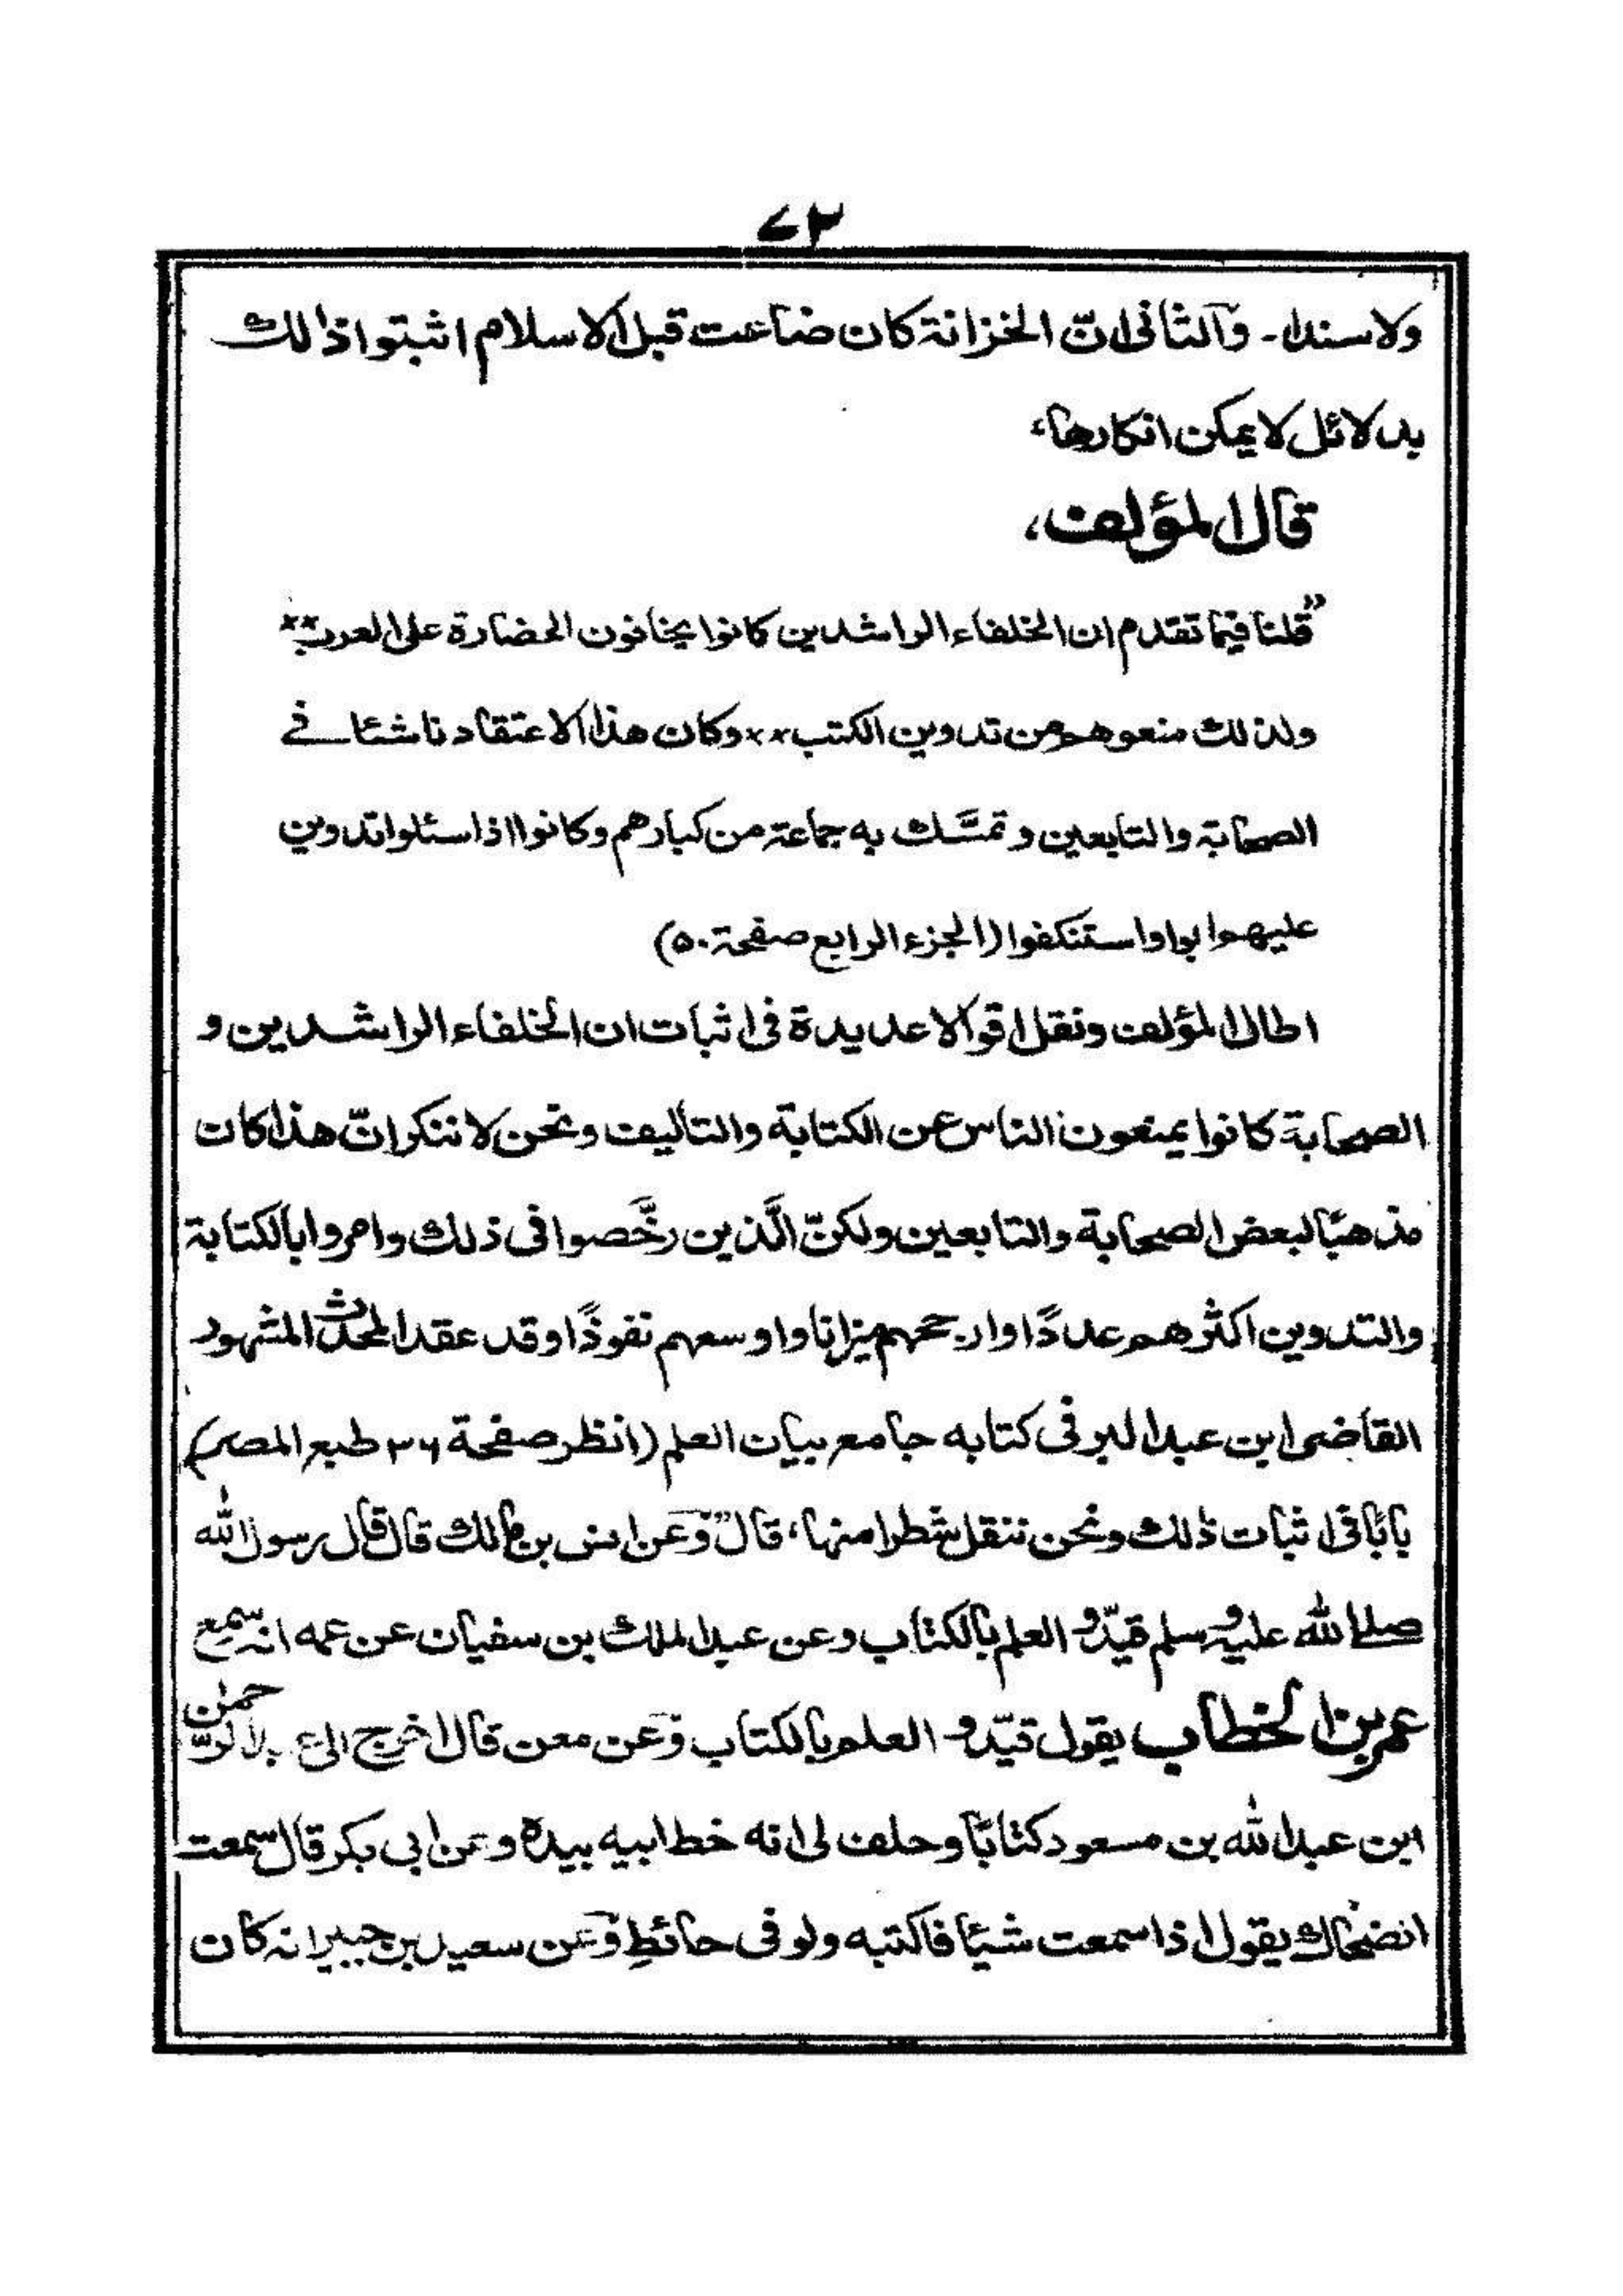 ٧٣
ولا سندا۔ وآلثانی انّ الخزانة کان ضاعت قبل الاسلام اثبتوا ذالك
بدلائل لا یمکن انکارها،
قال المؤلف،
”قلنا فیما تقدم ان الخلفاء الراشدین کانوا یخافون الحضارة علی العرب××
ولذلك منعوهم من تدوین الکتب×× وکان هذا الاعتقاد ناشئا فے
الصحابة والتابعین وتمسَّك به جماعة من کبارهم وکانوا اذا سئلوا تدوین
علیهم ابوا واستنکفوا (الجزء الرابع صفحة ۵۰)
اطال المؤلف ونقل اقوالا عدیدة فی اثبات ان الخلفاء الراشدین و
الصحابة کانوا یمنعون الناس عن الکتابة والتالیف ونحن لا ننکر انّ هذا کان
مذهبًا لبعض الصحابة والتابعین ولکنّ الَّذین رخَّصوا فی ذلك وامروا بالکتابة
والتدوین اکثرهم عددًا وارجحهم میزانا واوسعهم نفوذًا وقد عقد المحدث المشهور
القاضی ابن عبد البر فی کتابه جامع بیان العلم (انظر صفحة ۳۶ طبع المصر)
بابًا فی اثبات ذلك ونحن ننقل شطرا منها، قال ”وَعن انس بن مالك قال قال رسول الله
صلے الله علیه وسلم قیّدوا العلم بالکتاب وعن عبد الملك بن سفیان عن عمه انه سمع
عمر بن الخطاب یقول قیّدوا العلم بالکتاب وَعن معن قال اخرج الی عبد الرحمٰن
ابن عبد الله بن مسعود کتابًا وحلف لی انه خط ابیه بیده وعن ابی بکر قال سمعت
الضحاك یقول اذا سمعت شیئا فاکتبه ولو فی حائطٍ وَعن سعید بن جبیر انه کان